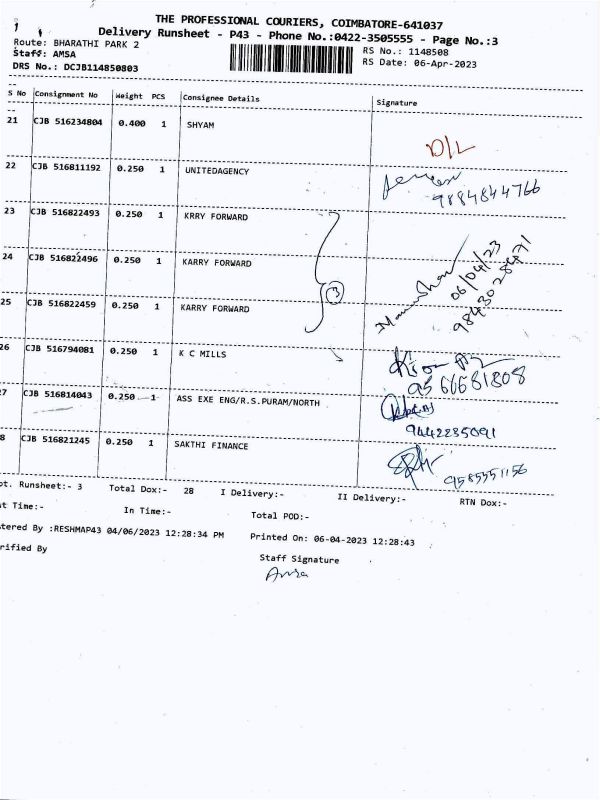 THE PROFESSIONAL COURIERS, COIMBATORE-641037
Delivery Runsheet - P43 - Phone No.:0422-3505555 - Page No.:3
Route: BHARATHI PARK 2 RS No.: 1148508
Staff: AMSA RS Date: 06-Apr-2023
DRS No.: DCJB114850803
S No Consignment No Weight PCS Consignee Details Signature
21 CJB 516234804 0.400 1 SHYAM D/L
22 CJB 516811192 0.250 1 UNITEDAGENCY 9884844766
23 CJB 516822493 0.250 1 KRRY FORWARD
24 CJB 516822496 0.250 1 KARRY FORWARD 3 06/04/23 98430 28471
25 CJB 516822459 0.250 1 KARRY FORWARD
26 CJB 516794081 0.250 1 K C MILLS 9566681808
7 CJB 516814043 0.250 1 ASS EXE ENG/R.S.PURAM/NORTH 9442235091
8 CJB 516821245 0.250 1 SAKTHI FINANCE 9585551156
ot. Runsheet:- 3 Total Dox:- 28 I Delivery:- II Delivery:- RTN Dox:-
t Time:- In Time:- Total POD:-
tered By :RESHMAP43 04/06/2023 12:28:34 PM Printed On: 06-04-2023 12:28:43
rified By
Staff Signature
Amsa